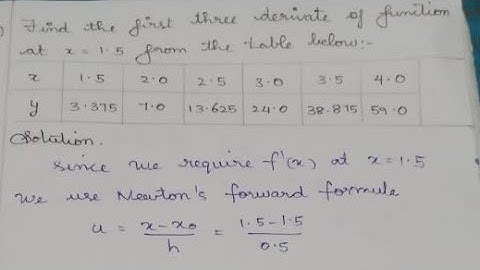 Find the first three derivate of funition
at x = 1.5 from the table below:-
x 1.5 2.0 2.5 3.0 3.5 4.0
y 3.375 7.0 13.625 24.0 38.875 59.0
Solution.
Since we require f'(x) at x = 1.5
we use Newton's forward formula
u = x - x₀ / h = 1.5 - 1.5 / 0.5